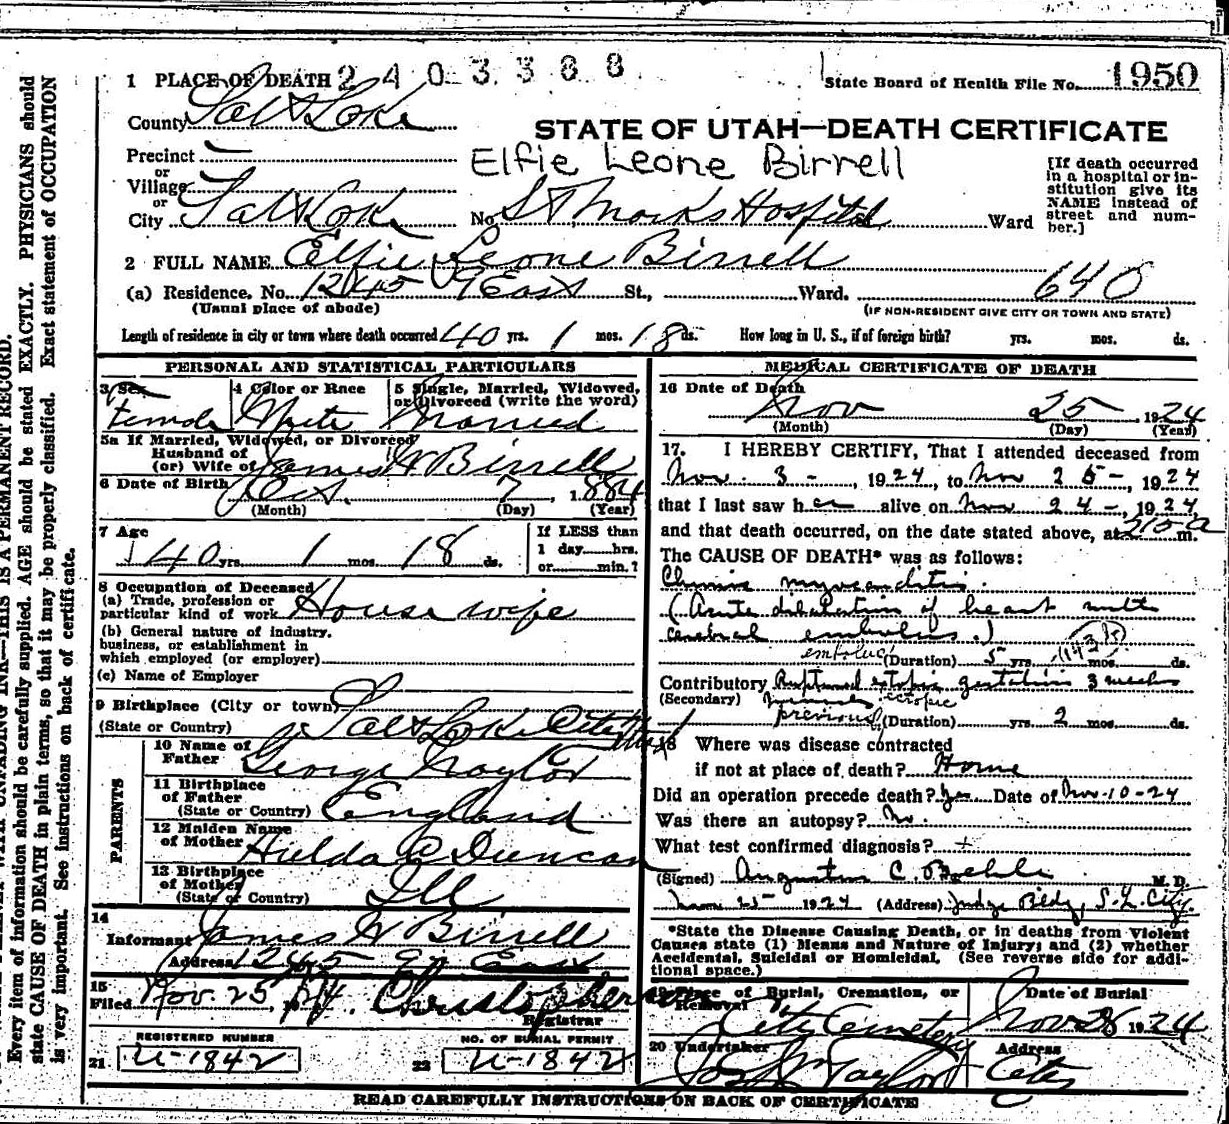 1 PLACE OF DEATH 2 4 0 3 3 8 8
State Board of Health File No. 1950
County Salt Lake
STATE OF UTAH—DEATH CERTIFICATE
Precinct
or
Village
or
City Salt Lake
Elfie Leone Birrell
No. St Marks Hospital Ward
[If death occurred in a hospital or institution give its NAME instead of street and number.]
2 FULL NAME Elfie Leone Birrell
(a) Residence. No. 1245 9 East St., Ward. 640
(Usual place of abode)
(IF NON-RESIDENT GIVE CITY OR TOWN AND STATE)
Length of residence in city or town where death occurred 40 yrs. 1 mos. 18 ds. How long in U. S., if of foreign birth? yrs. mos. ds.
PERSONAL AND STATISTICAL PARTICULARS
3 Sex Female
4 Color or Race White
5 Single, Married, Widowed, or Divorced (write the word) Married
5a If Married, Widowed, or Divorced
Husband of
(or) Wife of James W Birrell
6 Date of Birth Oct. 7, 1884
(Month) (Day) (Year)
7 Age 40 yrs. 1 mos. 18 ds.
If LESS than
1 day......hrs.
or......min.?
8 Occupation of Deceased
(a) Trade, profession or
particular kind of work Housewife
(b) General nature of industry.
business, or establishment in
which employed (or employer)
(c) Name of Employer
9 Birthplace (City or town) Salt Lake City Utah
(State or Country)
PARENTS
10 Name of Father George Naylor
11 Birthplace of Father England
(State or Country)
12 Maiden Name of Mother Hulda Duncan
13 Birthplace of Mother Ill
(State or Country)
14
Informant James W Birrell
Address 1245 9 East
15
Filed Nov. 25, 1924.
Registrar
REGISTERED NUMBER
21 U-1842
NO. OF BURIAL PERMIT
22 U-1842
MEDICAL CERTIFICATE OF DEATH
16 Date of Death
Nov 25, 1924
(Month) (Day) (Year)
17. I HEREBY CERTIFY, That I attended deceased from
Nov. 3 -, 1924, to Nov 25 -, 1924
that I last saw her alive on Nov 24 -, 1924,
and that death occurred, on the date stated above, at 215 a m.
The CAUSE OF DEATH* was as follows:
Chronic myocarditis.
(Acute dilatation of heart with
cerebral embolus.)
embolus (Duration) 5 yrs. mos. ds.
Contributory Ruptured ectopic gestation 3 weeks
(Secondary) ectopic
previous (Duration) yrs. 2 mos. ds.
18 Where was disease contracted
if not at place of death? Home
Did an operation precede death? Yes Date of Nov-10-24
Was there an autopsy? No.
What test confirmed diagnosis? +
(Signed) Augustus C. Behle M. D.
Nov 25 1924 (Address) Judge Bldg, S. L. City.
*State the Disease Causing Death, or in deaths from Violent
Causes state (1) Means and Nature of Injury; and (2) whether
Accidental, Suicidal or Homicidal. (See reverse side for additional space.)
19 Place of Burial, Cremation, or Removal City Cemetery
Date of Burial Nov 28 1924
20 Undertaker Taylor
Address City
READ CAREFULLY INSTRUCTIONS ON BACK OF CERTIFICATE
Every item of information should be carefully supplied. AGE should be stated EXACTLY. PHYSICIANS should
state CAUSE OF DEATH in plain terms, so that it may be properly classified. Exact statement of OCCUPATION
is very important. See instructions on back of certificate.
INK—THIS IS A PERMANENT RECORD.